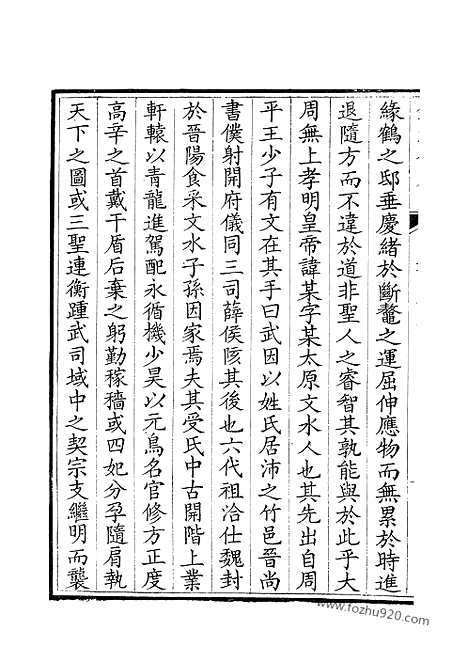 緣鶴之邸垂慶緒於斷鼇之運屈伸應物而無累於時進
退隨方而不違於道非聖人之睿智其孰能與於此乎大
周無上孝明皇帝諱某字某太原文水人也其先出自周
平王少子有文在其手曰武因以姓氏居沛之竹邑晉尚
書僕射開府儀同三司薛侯陔其後也六代祖洽仕魏封
於晉陽食采文水子孫因家焉夫其受氏中古開階上業
軒轅以青龍進駕配永循機少昊以元鳥名官修方正度
高辛之首戴干盾后棄之躬勤稼穡或四妃分孕隨肩執
天下之圖或三聖連衡踵武司域中之契宗支繼明而襲
www.fozhu920.com